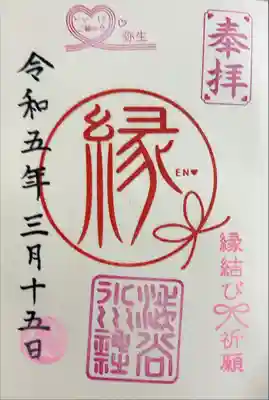 弥生
奉拝
縁
EN♥
縁結び祈願
渋谷
氷川神社
令和五年三月十五日